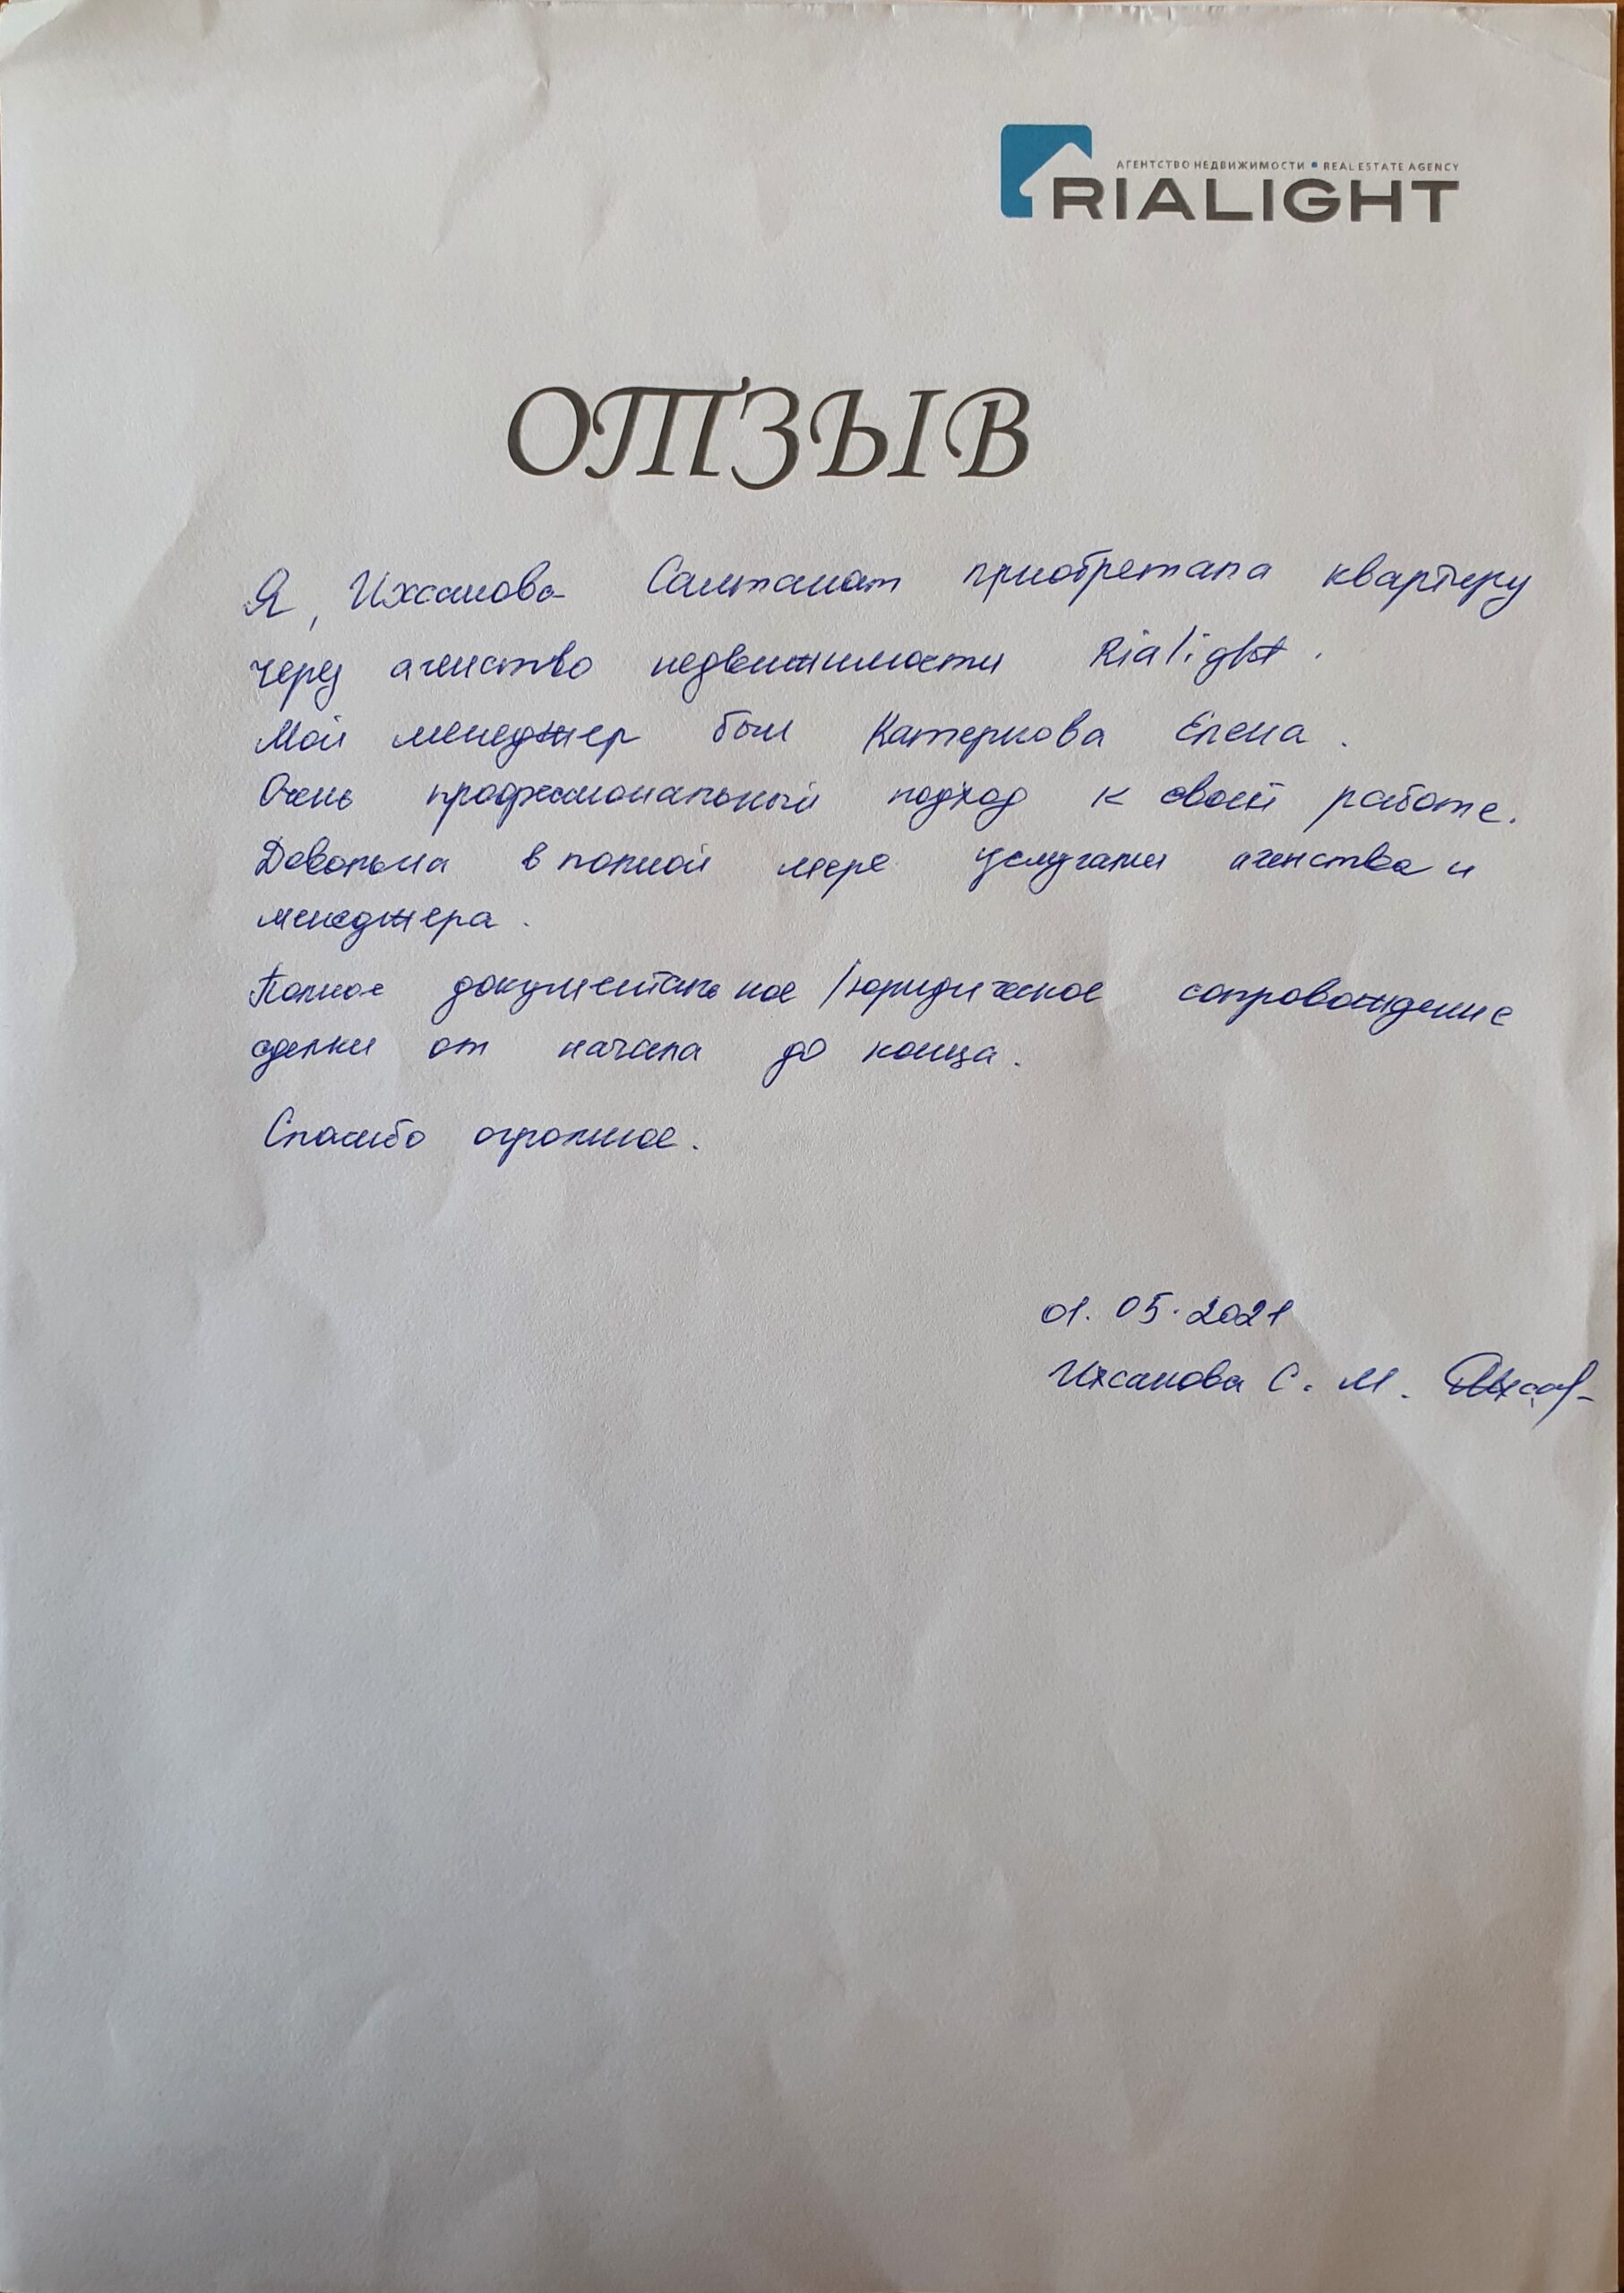 АГЕНТСТВО НЕДВИЖИМОСТИ • REAL ESTATE AGENCY
RIALIGHT
ОТЗЫВ
Я, Ихсанова Салтанат приобретала квартиру
через агенство недвижимости Rialight.
Мой менеджер был Катеркова Елена.
Очень профессиональный подход к своей работе.
Довольна в полной мере услугами агенства и
менеджера.
Полное документальное/юридическое сопровождение
сделки от начала до конца.
Спасибо огромное.
01.05.2021
Ихсанова С. М.